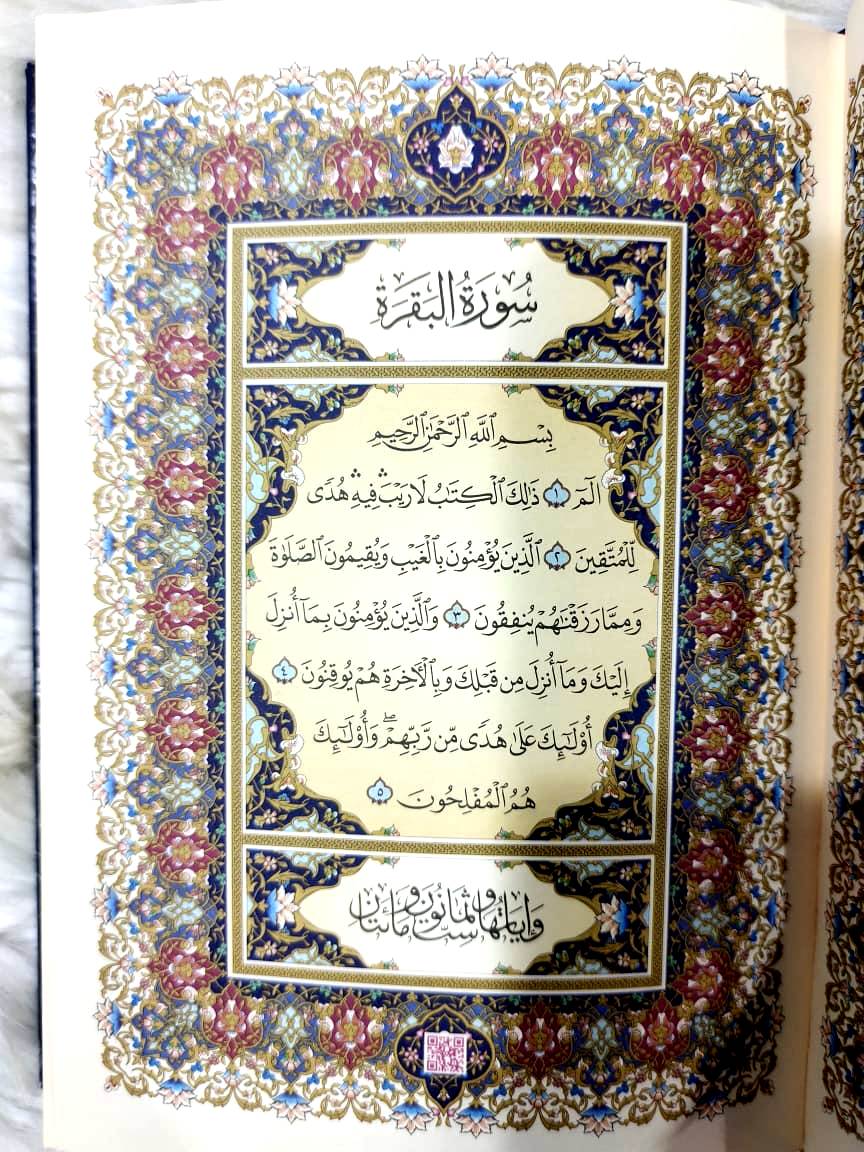 سُورَةُ البَقَرَةِ
بِسْمِ ٱللَّهِ ٱلرَّحْمَٰنِ ٱلرَّحِيمِ
الٓمٓ ١ ذَٰلِكَ ٱلْكِتَٰبُ لَا رَيْبَ ۛ فِيهِ ۛ هُدًى
لِّلْمُتَّقِينَ ٢ ٱلَّذِينَ يُؤْمِنُونَ بِٱلْغَيْبِ وَيُقِيمُونَ ٱلصَّلَوٰةَ
وَمِمَّا رَزَقْنَٰهُمْ يُنفِقُونَ ٣ وَٱلَّذِينَ يُؤْمِنُونَ بِمَآ أُنزِلَ
إِلَيْكَ وَمَآ أُنزِلَ مِن قَبْلِكَ وَبِٱلْأٓخِرَةِ هُمْ يُوقِنُونَ ٤
أُو۟لَٰٓئِكَ عَلَىٰ هُدًى مِّن رَّبِّهِمْ ۖ وَأُو۟لَٰٓئِكَ
هُمُ ٱلْمُفْلِحُونَ ٥
وَآيَاتُهَا سِتٌّ وَثَمَانُونَ وَمِائَتَانِ